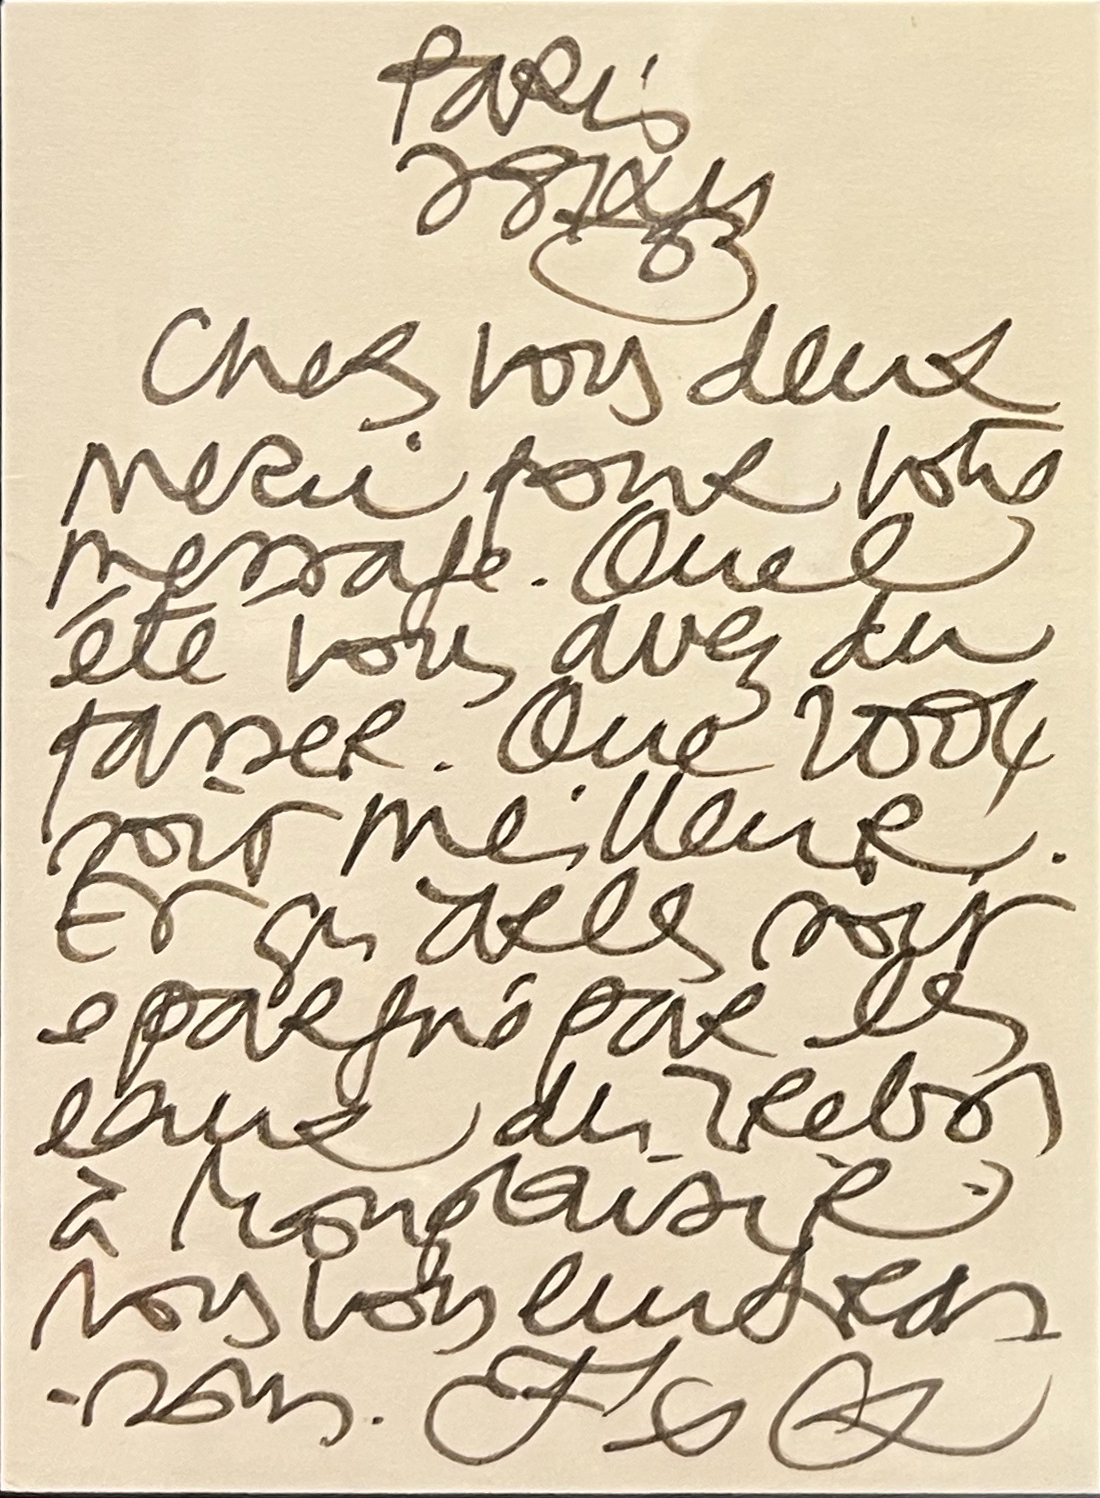 Paris
28 XII
03
Chers vous deux
merci pour votre
message. Quel
été vous avez du
passer. Que 2004
soit meilleure.
Et qu'Arles soit
epargné par les
eaux du Rebos
à Montplaisir
nous vous embras
-sons.